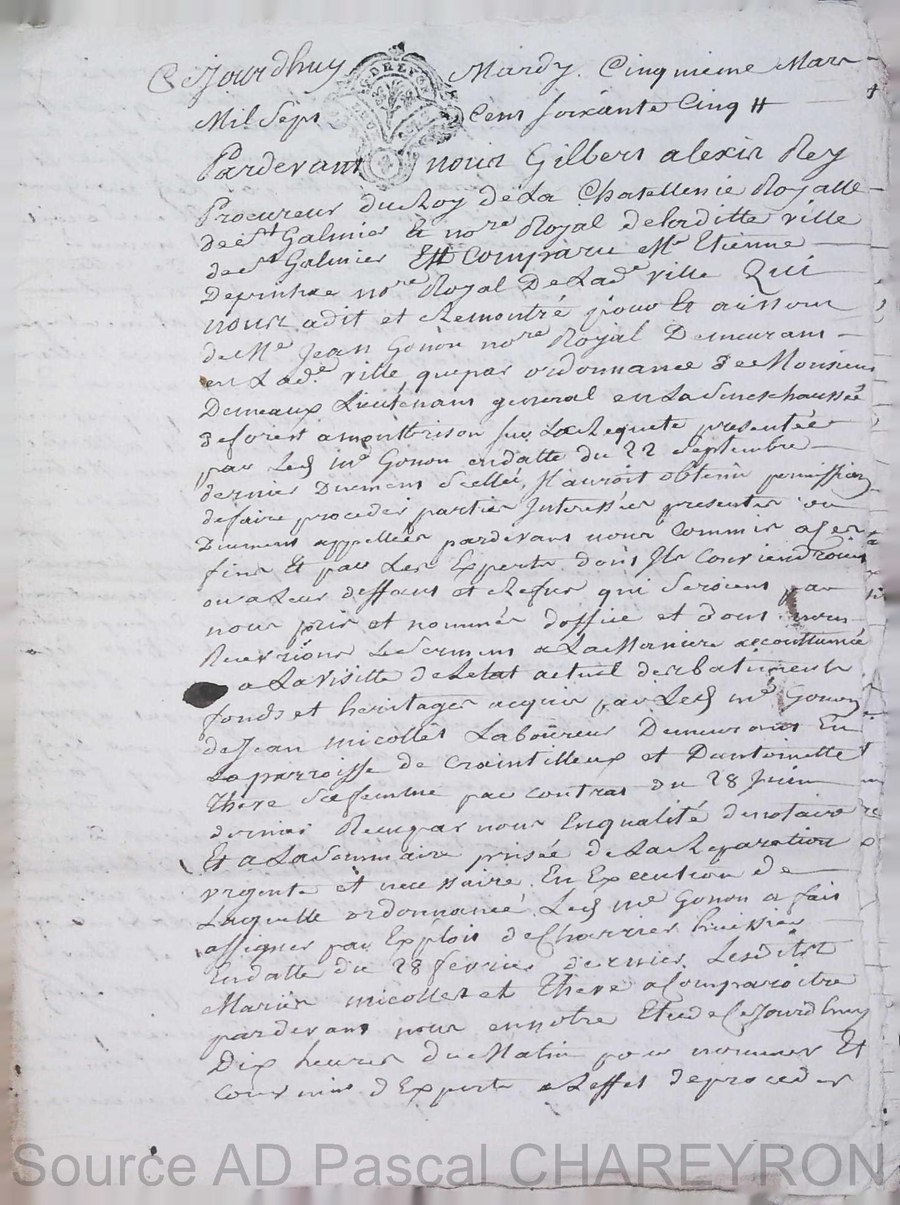 Cejourdhuy Mardy Cinquieme Mars
Mil Sept Cent soixante Cinq
Pardevant nous Gilbert alexis Rey
Procureur du Roy de La Chatellenie Royalle
de st Galmier & nore Royal deladitte ville
de st Galmier Est comparu Me Etienne
nore Royal De Lade ville Qui
nous a dit et Remontré pour & au nom
de Me Jean Gonon nore Royal Demeurant
en Lade ville que par ordonnance de Monsieur
Demeaux Lieutenant general en La Seneschaussée
deforest a montbrison sur La Requete presentée
par Led me Gonon en datte du 22 Septembre
dernier Duement Scellée, Il auroit obtenu permission
defaire proceder parties Interessées presentes ou
Duement appellées pardevant nous Commis a ses
fins Et par Les Experts dont Ils Conviendroient
ou a Leur deffaut et Refus qui Seroient par
nous pris et nommés doffice et dont nous
Recevrions Le Serment a La Maniere accouttumée
a La visitte de Letat actuel des batiments
fonds et heritages acquis par Led me Gonon
de Jean micollet Laboureur Demeurant En
La parroisse de Craintilleux et Dantoinette
There Sa femme par contrat du 28 Juin
dernier Recu par nous En qualité de notaire
Et a La Sommaire prisée de La Reparation
urgente et necessaire. En Execution de
Laquelle ordonnance, Led me Gonon a fait
assigner par Exploit de Charrier huissier
en datte du 28 fevrier dernier, Lesdits
Mariés micollet et There a Comparoitre
pardevant nous en notre Etude Cejourdhuy
Dix heures du Matin pour nommer Et
Convenir d'Experts a Leffet de proceder
Source AD Pascal CHAREYRON